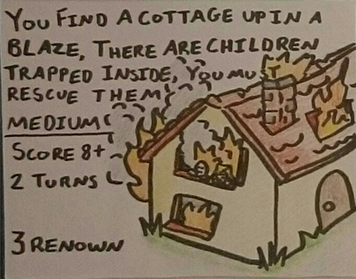 You FIND A COTTAGE UP IN A
BLAZE, THERE ARE CHILDREN
TRAPPED INSIDE, You MUST
RESCUE THEM
MEDIUM
SCORE 8+
2 TURNS
3 RENOWN